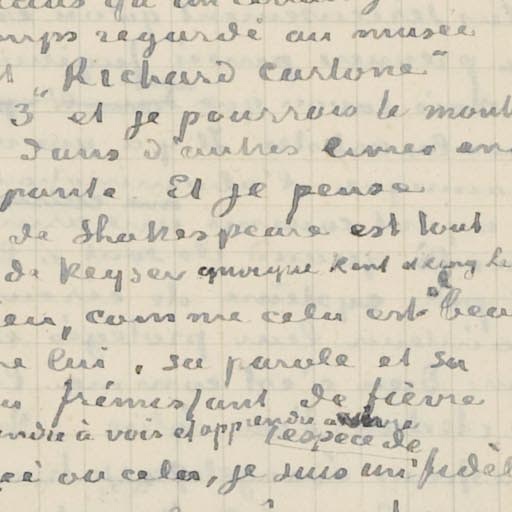 regardé au musée
"Richard Cartone"
3 et je pourrais te mont
dans d'autres livres en
parente. Et je pense
de Shakespeare est tout
de Keyser quoique Kent de King Le
comme cela est beau
lui, sa parole et sa
frémissant de fièvre
à voir et apprendre à vivre
espèce de
ou cela, je suis infidèl